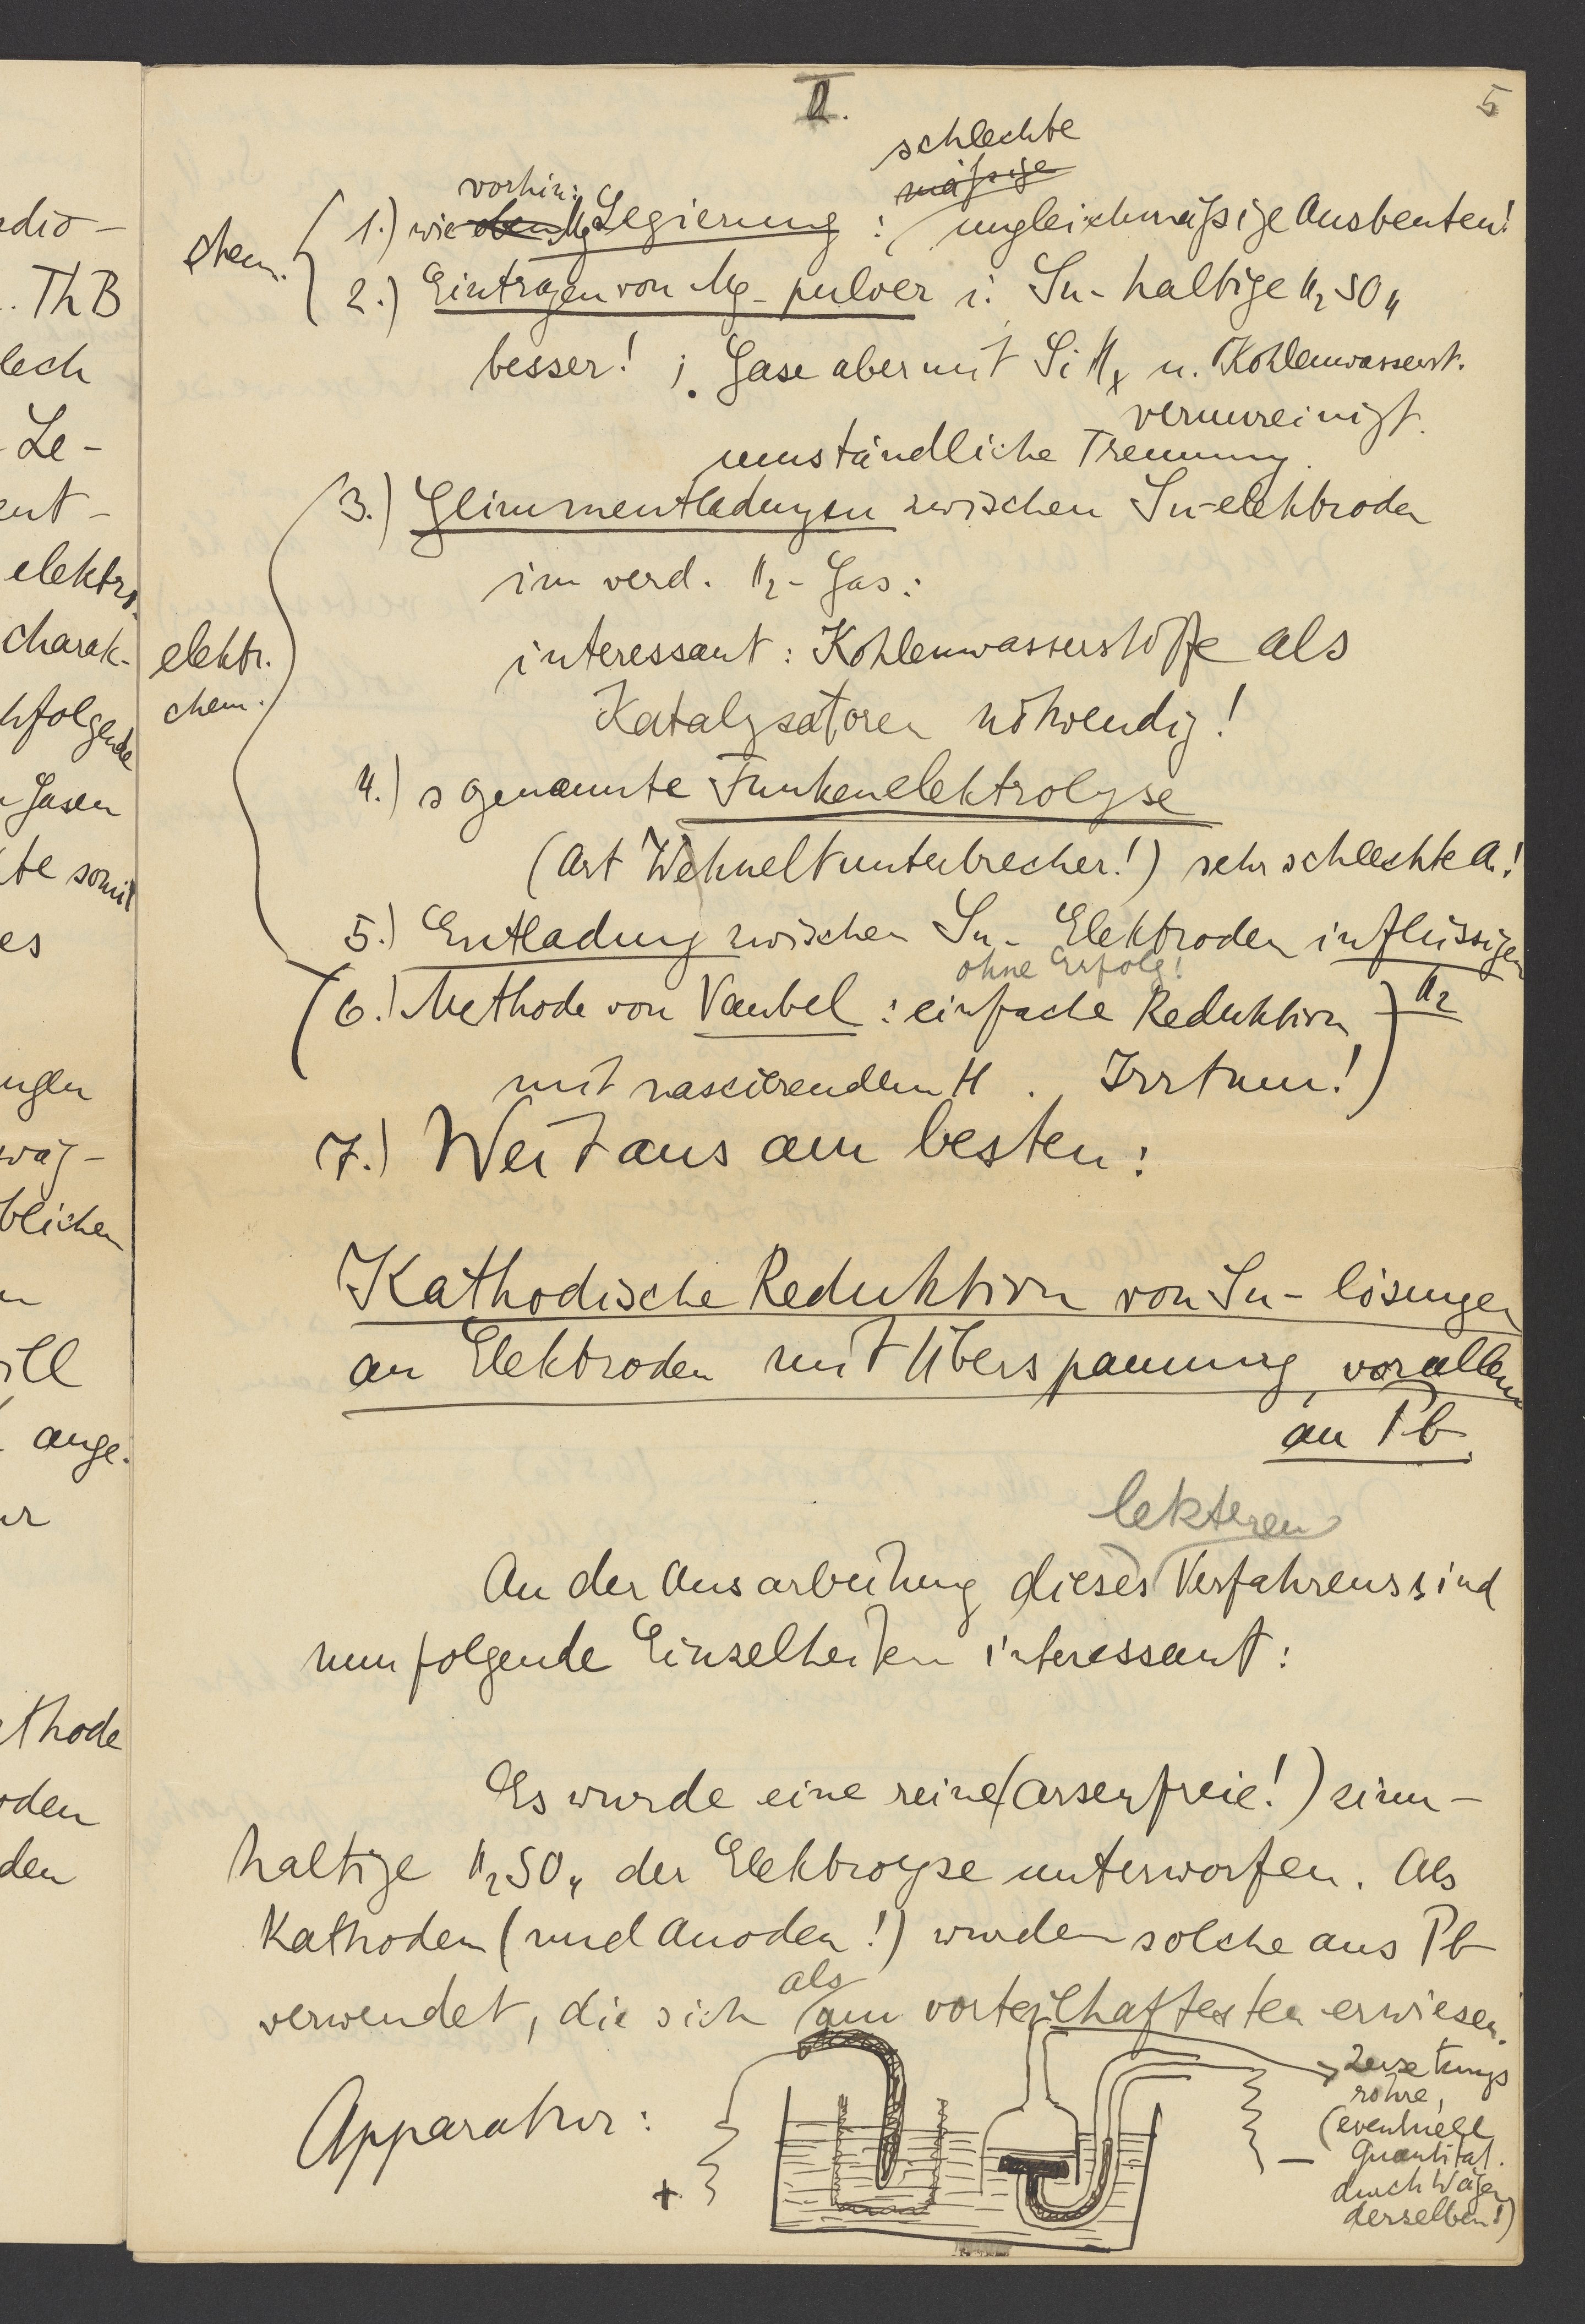 II.
5
schlechte
mäßige
vorhin:
chem. 1.) wie oben Mg Legierung : ungleichmäßige Ausbeuten!
2.) Eintragen von Mg-pulver i. Sn-haltige H2SO4
besser! ; Gase aber mit SiHx u. Kohlenwasserst.
verunreinigt.
umständliche Trennung.
3.) Glimmentladungen zwischen Sn-elektroden
im verd. H2-Gas:
interessant: Kohlenwasserstoffe als
elektr.
chem.
Katalysatoren notwendig!
4.) sogenannte Funkenelektrolyse
(Art Wehneltunterbrecher!) sehr schlechte A.!
5.) Entladung zwischen Sn-Elektroden in flüssigen
H2
ohne Erfolg!
(6.) Methode von Vaubel : einfache Reduktion
mit nascierendem H. Irrtum!)
7.) Weitaus am besten:
Kathodische Reduktion von Sn-lösungen
an Elektroden mit Überspannung, vor allem
an Pb.
An der Ausarbeitung dieses Verfahrens sind
nun folgende Einzelheiten interessant:
Es wurde eine reine (arsenfreie!) zinn-
haltige H2SO4 der Elektroyse unterworfen. Als
Kathoden (und Anoden!) wurden solche aus Pb
als
verwendet, die sich am vorteilhaftesten erwiesen.
Apparatur:
+
-
Zersetzungs
röhre,
(eventuell
Quantitat.
durch Wägen
derselben!)
dio-
. ThB
lech
Le-
ent-
elektro.
charak-
hfolgende
Gasen
te somit
es
ngen
wäg-
blichen
ill
ange.
thode
oden
den